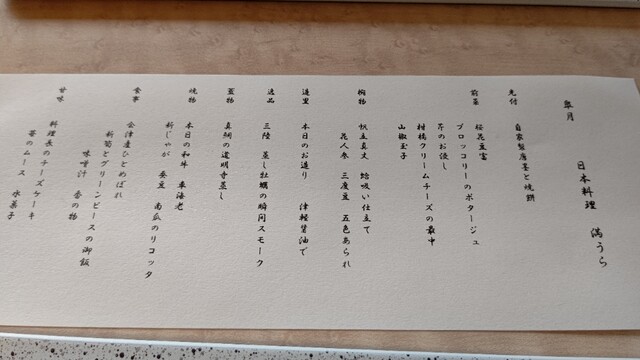 皐月
日本料理 満うら
先付
自家製唐墨と焼餅
前菜
桜花豆富
ブロッコリーのポタージュ
芹のお浸し
柑橘クリームチーズの最中
山椒玉子
椀物
帆立真丈 蛤吸い仕立て
花人参 三度豆 五色あられ
造里
本日のお造り 津軽醤油で
逸品
三陸 蒸し牡蠣の瞬間スモーク
蓋物
真鯛の道明寺蒸し
焼物
本日の和牛 車海老
新じゃが 蚕豆 南瓜のリコッタ
食事
会津産ひとめぼれ
新筍とグリーンピースの御飯
味噌汁 香の物
甘味
料理長のチーズケーキ
苺のムース 水菓子